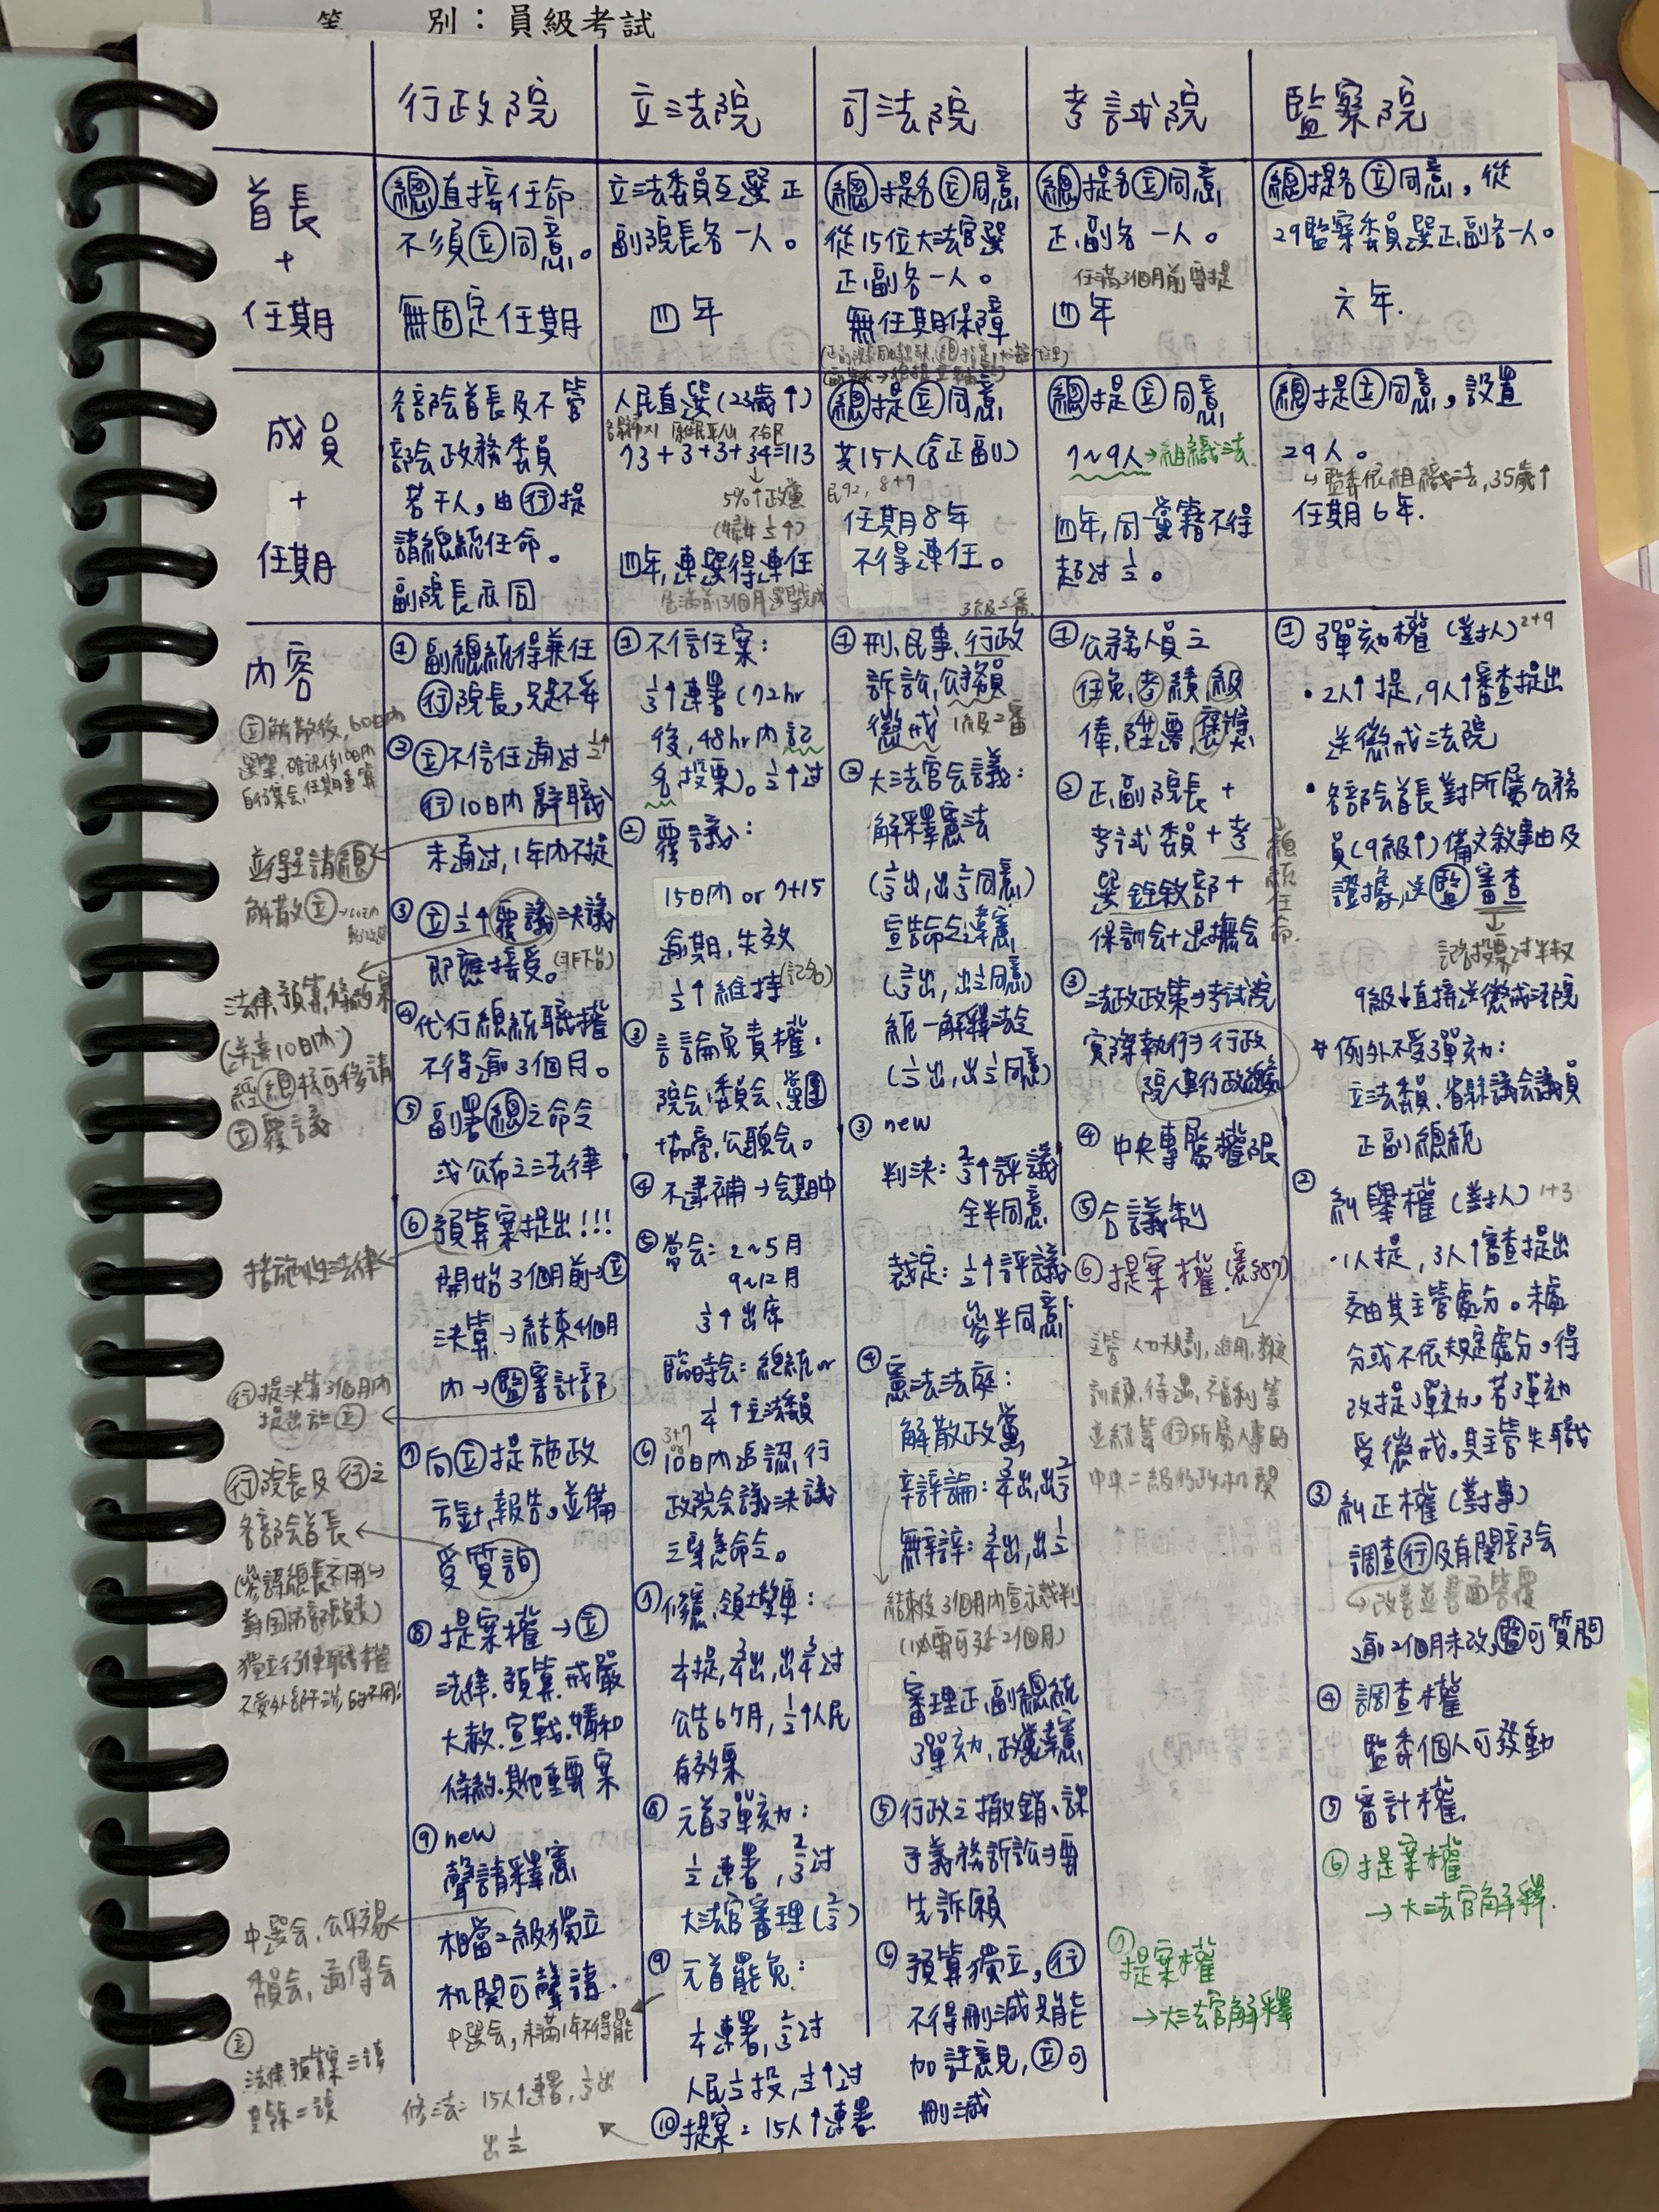 別：員級考試
行政院
立法院
司法院
考試院
監察院
首長
+
任期
總直接任命
不須立同意。
無固定任期
立法委員互選正
副院長各一人。
四年
總提名立同意
從15位大法官選
正副各一人。
無任期保障
總提名立同意
正、副各一人。
任滿3個月前要提
四年
總提名立同意，從
29監察委員選正副各一人。
六年.
成員
+
任期
各部會首長及不管
部会政務委員
若干人，由行提
請總統任命。
副院長亦同
人民直選(23歲↑)
73+3+3+34=113
5%↑政黨
(婦女½↑)
四年，連選得連任
屆滿前3個月選舉完成
總提立同意
共15人(含正副)
民92, 8+7
任期8年
不得連任。
總提立同意
7~9人→組織法
四年，同一黨籍不得
超过½。
總提立同意，設置
29人。
→監委依組織法，35歲↑
任期6年.
內容
①副總統得兼任
行院長，只是不妥
②立不信任通过½↑
行10日內辭職
未通过，1年內不提
③立½↑覆議決議
即應接受。
④代行總統職權
不得逾3個月。
⑤副署總之命令
或公布之法律
⑥預算案提出!!!
開始3個月前→立
決算→結束4個月
內→監審計部
⑦向立提施政
方針，報告。並備
受質詢
⑧提案權→立
法律.預算.戒嚴
大赦.宣戰.媾和
條約.其他重要案
⑨new
聲請釋憲
相當2級獨立
机関可聲請.
中選会，未滿1年不得罷
修法：15人↑連署，⅓出
出½
立解散後，60日內
選舉，確認後10日內
自行集会，任期重算
並得呈請總
解散立
法律，預算，條約案
(送達10日內)
經總核可移請
立覆議
措施性法律
行提決算3個月內
提出於立
行院長及行之
各部会首長
(參謀總長不用→
對国防部長負責)
獨立行使職權
不受外部干涉的不用
中選会，公平交易
委員会，通傳会
立
法律預算案三讀
其餘二讀
①不信任案：
⅓↑連署(72hr
後，48hr內記
名投票)。½↑过
②覆議：
15日內 or 7+15
逾期，失效
½↑維持(記名)
③言論免責權：
院会，委員会，黨團
協商，公聽会。
④不逮補→会期中
⑤常会：2~5月
9~12月
⅓↑出席
臨時会：總統or
¼↑立法委員
⑥10日內追認，行
政院会議決議
之緊急命令。
⑦修憲、領土變更：
¼提，¾出，出¾过
公告6ケ月，½↑人民
有效票
⑧元首彈劾：
½連署，⅔过
大法官審理(⅔)
⑨元首罷免：
¼連署，⅔过
人民½投，½↑过
⑩提案：15人↑連署
3級2審
①刑、民事、行政
訴訟，公務員
懲戒 1級2審
②大法官会議：
解釋憲法
(⅔出，出⅔同意)
宣告命令違憲
(⅔出，出½同意)
統一解釋法令
(½出，出½同意)
③new
判決：⅔↑評議
全半同意
裁定：½↑評議
參半同意
④憲法法庭：
解散政黨
辛評論：¾出，出⅔
無辛辞：¾出，出½
結束後3個月內宣示裁判
(必要可延2個月)
審理正、副總統
彈劾，政黨違憲
⑤行政之撤銷、課
予義務訴訟→要
先訴願
⑥預算獨立，行
不得刪減只能
加註意見，立可
刪減
①公務人員之
任免，考績，級
俸，陞遷，褒獎
②正、副院長+
考試委員+考
選銓敘部+
保訓会+退撫会
→總統任命
③法政政策→考試院
實際執行→行政
院人事行政總處
④中央專屬權限
⑤合議制
⑥提案權(憲§87)
主管人力規劃，進用，考核
訓練，待遇，福利等
並統籌行所屬人事的
中央二級行政机関
⑦
提案權
→大法官解釋
①彈劾權(對人)2+9
•2人↑提，9人↑審查提出
送懲戒法院
•各部会首長對所屬公務
員(9級↑)備文敘事由及
證據，送監審查
記名投票过半數
9級↓直接送懲戒法院
*例外不受彈劾：
立法委員、省縣議会議員
正副總統
②糾舉權(對人)1+3
•1人提，3人↑審查提出
交由其主管處分。未處
分或不依規定處分。得
改提彈劾。若彈劾
受懲戒。其主管失職
③糾正權(對事)
調查行及有関部会
→改善並書面答覆
逾2個月未改，監可質問
④調查權
監委個人可發動
⑤審計權
⑥提案權
→大法官解釋.